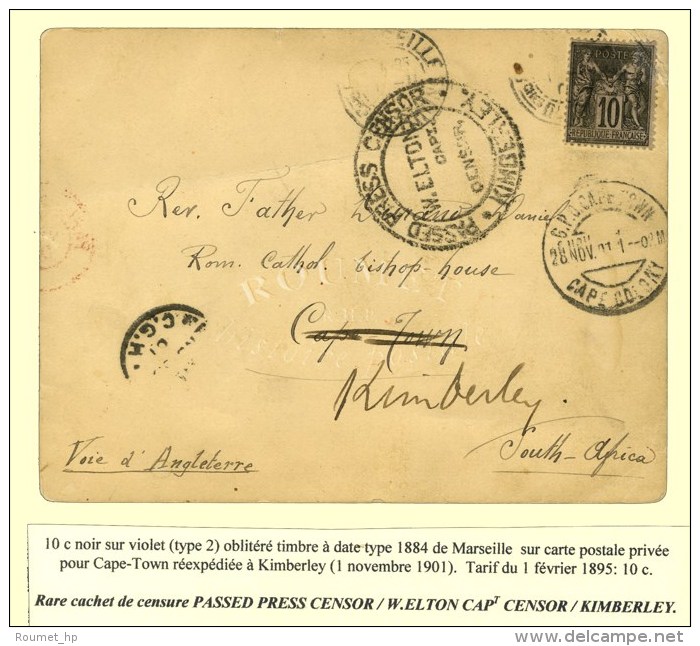 POSTE
10
REPUBLIQUE FRANÇAISE
PASSED PRESS CENSOR · KIMBERLEY ·
W. ELTON
CAPT.
CENSOR.
G.P.O. CAPE TOWN
28 NOV. 01 1
CAPE COLONY
Rev. Father
Rom. Cathol. bishop-house
ROUMET
Cape Town
Kimberley.
C.G.H.
Voie d'Angleterre
South-Africa
10 c noir sur violet (type 2) oblitéré timbre à date type 1884 de Marseille sur carte postale privée
pour Cape-Town réexpédiée à Kimberley (1 novembre 1901). Tarif du 1 février 1895: 10 c.
Rare cachet de censure PASSED PRESS CENSOR / W.ELTON CAPT CENSOR / KIMBERLEY.
Roumet_hp
delcampe.net